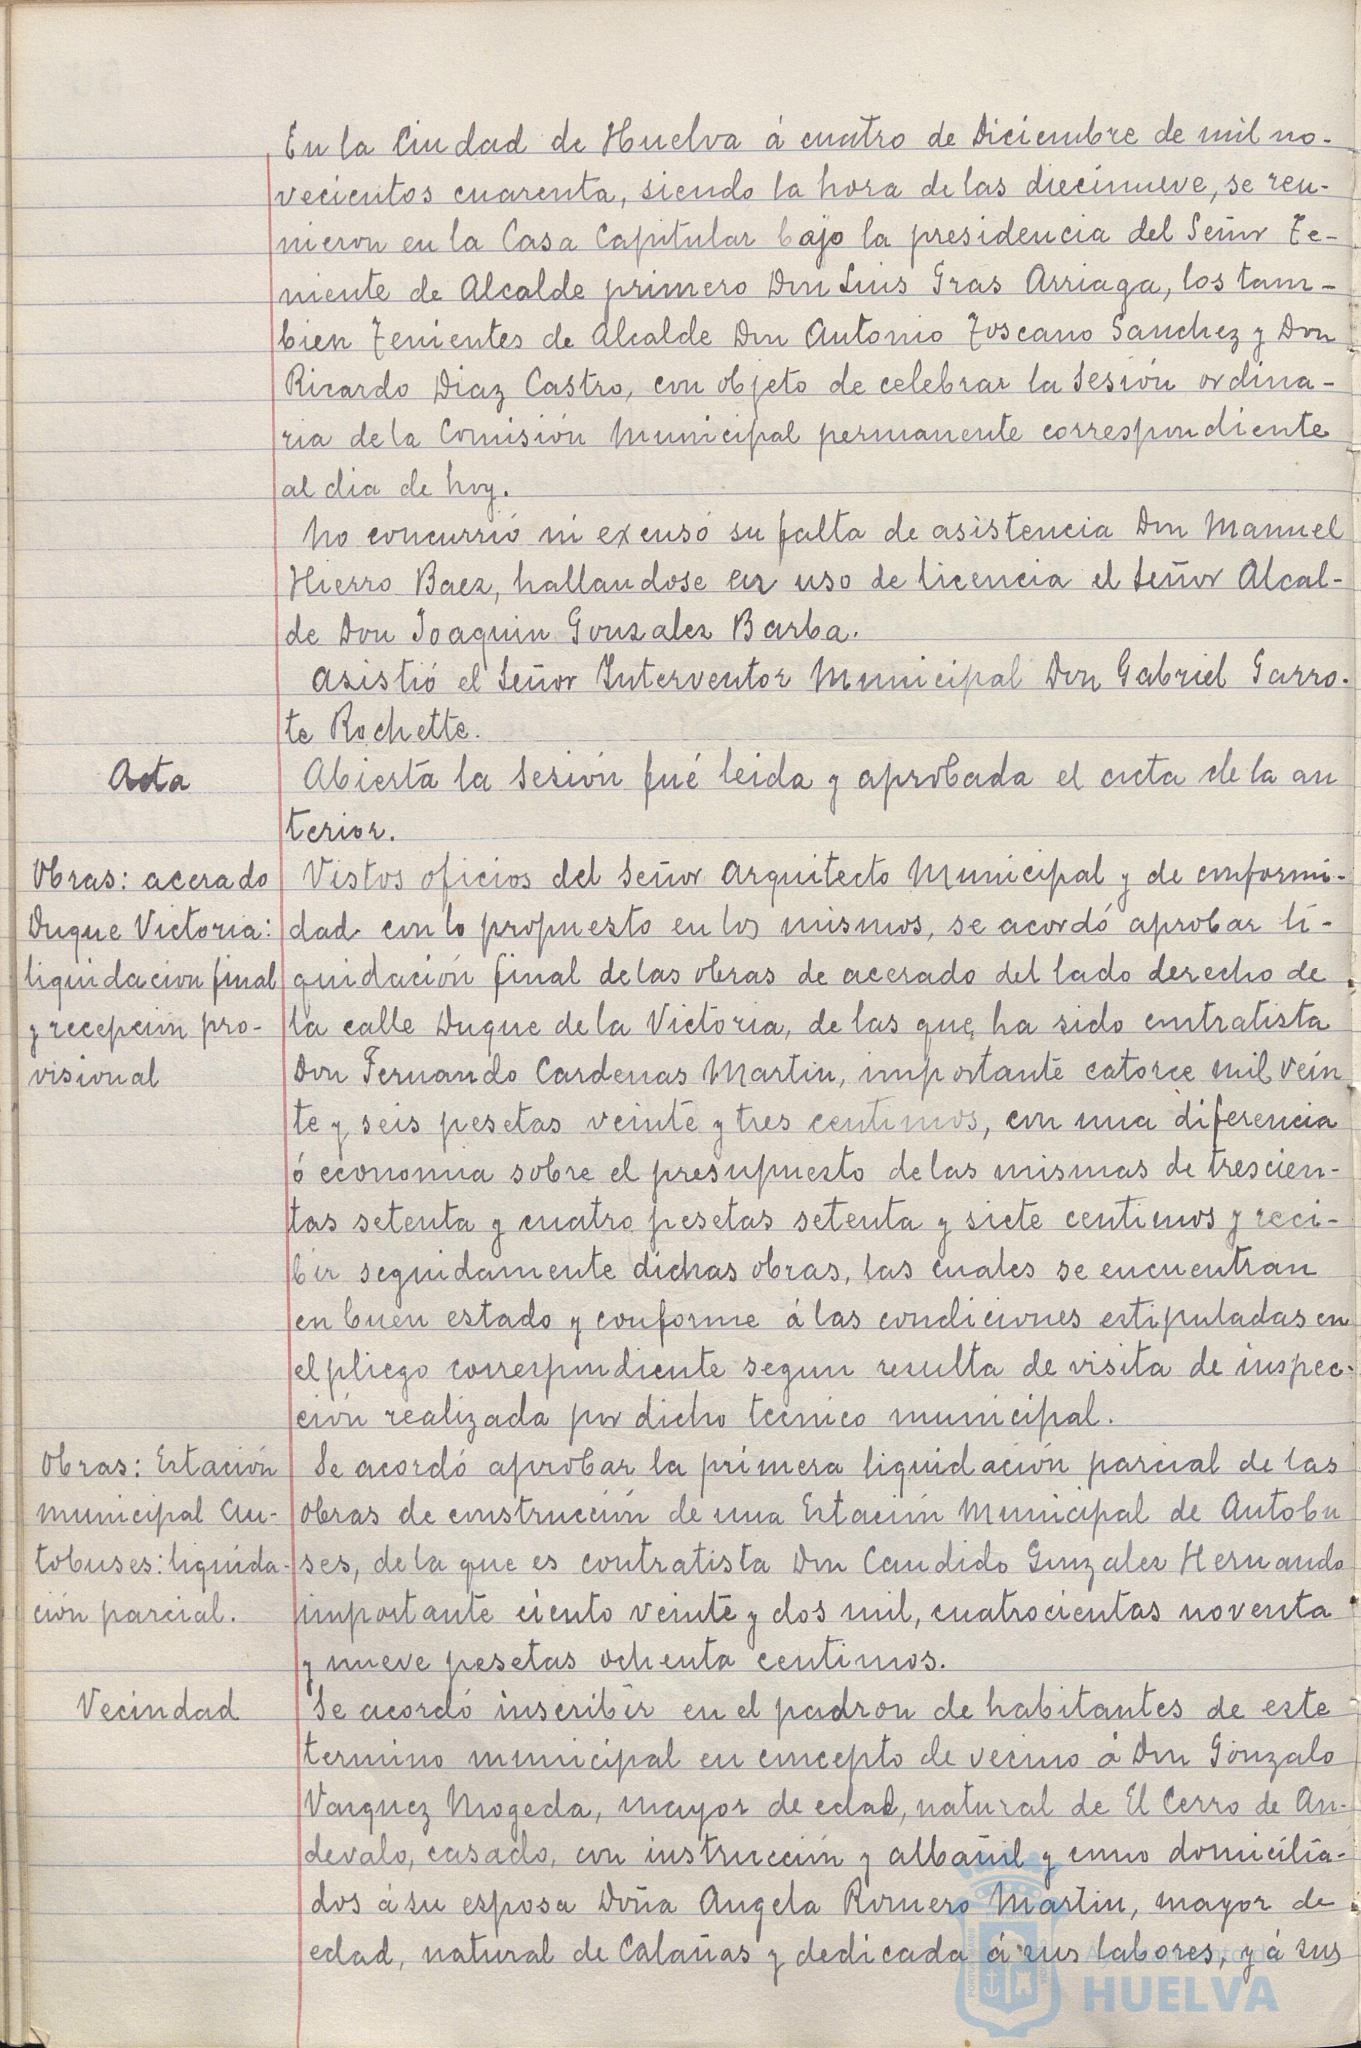 En la Ciudad de Huelva á cuatro de Diciembre de mil no-
vecientos cuarenta, siendo la hora de las diecinueve, se reu-
nieron en la Casa Capitular bajo la presidencia del Señor Te-
niente de Alcalde primero Don Luis Gras Arriaga, los tam-
bien Tenientes de Alcalde Don Antonio Toscano Sanchez y Don
Ricardo Diaz Castro, con objeto de celebrar la sesión ordina-
ria de la Comisión Municipal permanente correspondiente
al dia de hoy.
No concurrió ni excusó su falta de asistencia Don Manuel
Hierro Baez, hallandose en uso de licencia el Señor Alcal-
de Don Joaquin Gonzalez Barba.
Asistió el Señor Interventor Municipal Don Gabriel Garro-
te Rochette.
Acta
Abierta la sesión fué leida y aprobada el acta de la an
terior.
Obras: acerado
Duque Victoria:
liquidacion final
y recepción pro-
visional
Vistos oficios del Señor Arquitecto Municipal y de conformi-
dad con lo propuesto en los mismos, se acordó aprobar li-
quidación final de las obras de acerado del lado derecho de
la calle Duque de la Victoria, de las que ha sido contratista
Don Fernando Cardenas Martin, importante catorce mil vein
te y seis pesetas veinte y tres centimos, con una diferencia
ó economia sobre el presupuesto de las mismas de trescien-
tas setenta y cuatro pesetas setenta y siete centimos y reci-
bir seguidamente dichas obras, las cuales se encuentran
en buen estado y conforme á las condiciones estipuladas en
el pliego correspondiente segun resulta de visita de inspec-
ción realizada por dicho tecnico municipal.
Obras: Estación
municipal Au-
tobuses: liquida-
ción parcial.
Se acordó aprobar la primera liquidación parcial de las
obras de construcción de una Estación Municipal de Autobu
ses, de la que es contratista Don Candido Gonzalez Hernando
importante ciento veinte y dos mil, cuatrocientas noventa
y nueve pesetas ochenta centimos.
Vecindad
Se acordó inscribir en el padron de habitantes de este
termino municipal en concepto de vecino á Don Gonzalo
Vazquez Mogeda, mayor de edad, natural de El Cerro de An-
devalo, casado, con instrucción y albañil y como domicilia-
dos á su esposa Doña Angela Romero Martin, mayor de
edad, natural de Calañas y dedicada á sus labores, y á sus
HUELVA